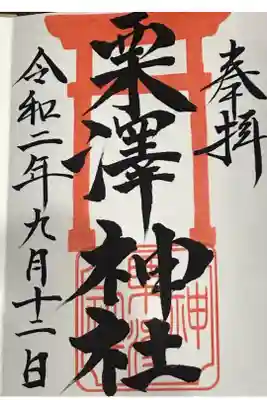 奉拝
栗澤神社
令和二年九月十二日